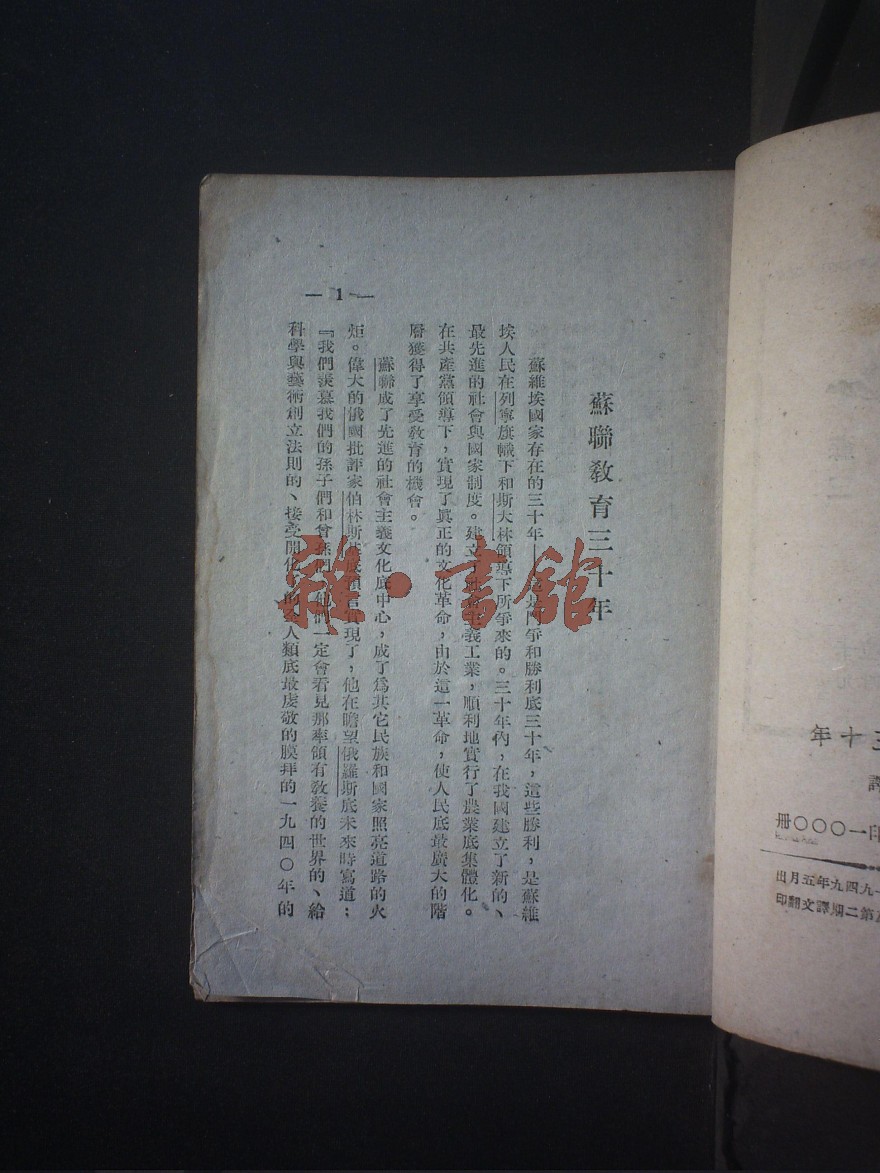 蘇聯教育三十年
蘇維埃國家存在的三十年——這是鬥爭和勝利底三十年,這些勝利,是蘇維
埃人民在列寧旗幟下和斯大林領導下所爭來的。三十年內,在我國建立了新的、
最先進的社會與國家制度。建立了社會主義工業,順利地實行了農業底集體化。
在共產黨領導下,實現了眞正的文化革命,由於這一革命,使人民底最廣大的階
層獲得了享受敎育的機會。
蘇聯成了先進的社會主義文化底中心,成了爲其它民族和國家照亮道路的火
炬。偉大的俄國批評家伯林斯基底預言實現了,他在瞻望俄羅斯底未來時寫道:
『我們羨慕我們的孫子們和曾孫們,他們一定會看見那率領有敎養的世界的、給
科學與藝術創立法則的、接受開化的全人類底最虔敬的膜拜的一九四〇年的
— 1 —
三十年
譯
印一〇〇〇册
一九四九年五月出
第二期譯文翻印
雜·書館